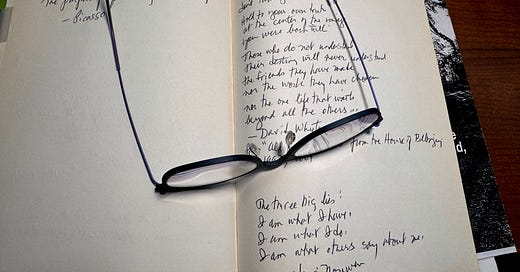 The
— Picasso
Hold to your own truth
at the center of the image
you were born with.
Those who do not understand
their destiny will never understand
the friends they have made
nor the work they have chosen
nor the one life that waits
beyond all the others...
— David Whyte
"All
from the House of Belonging
The three big lies:
I am what I have,
I am what I do,
I am what others say about me.
Nouwen